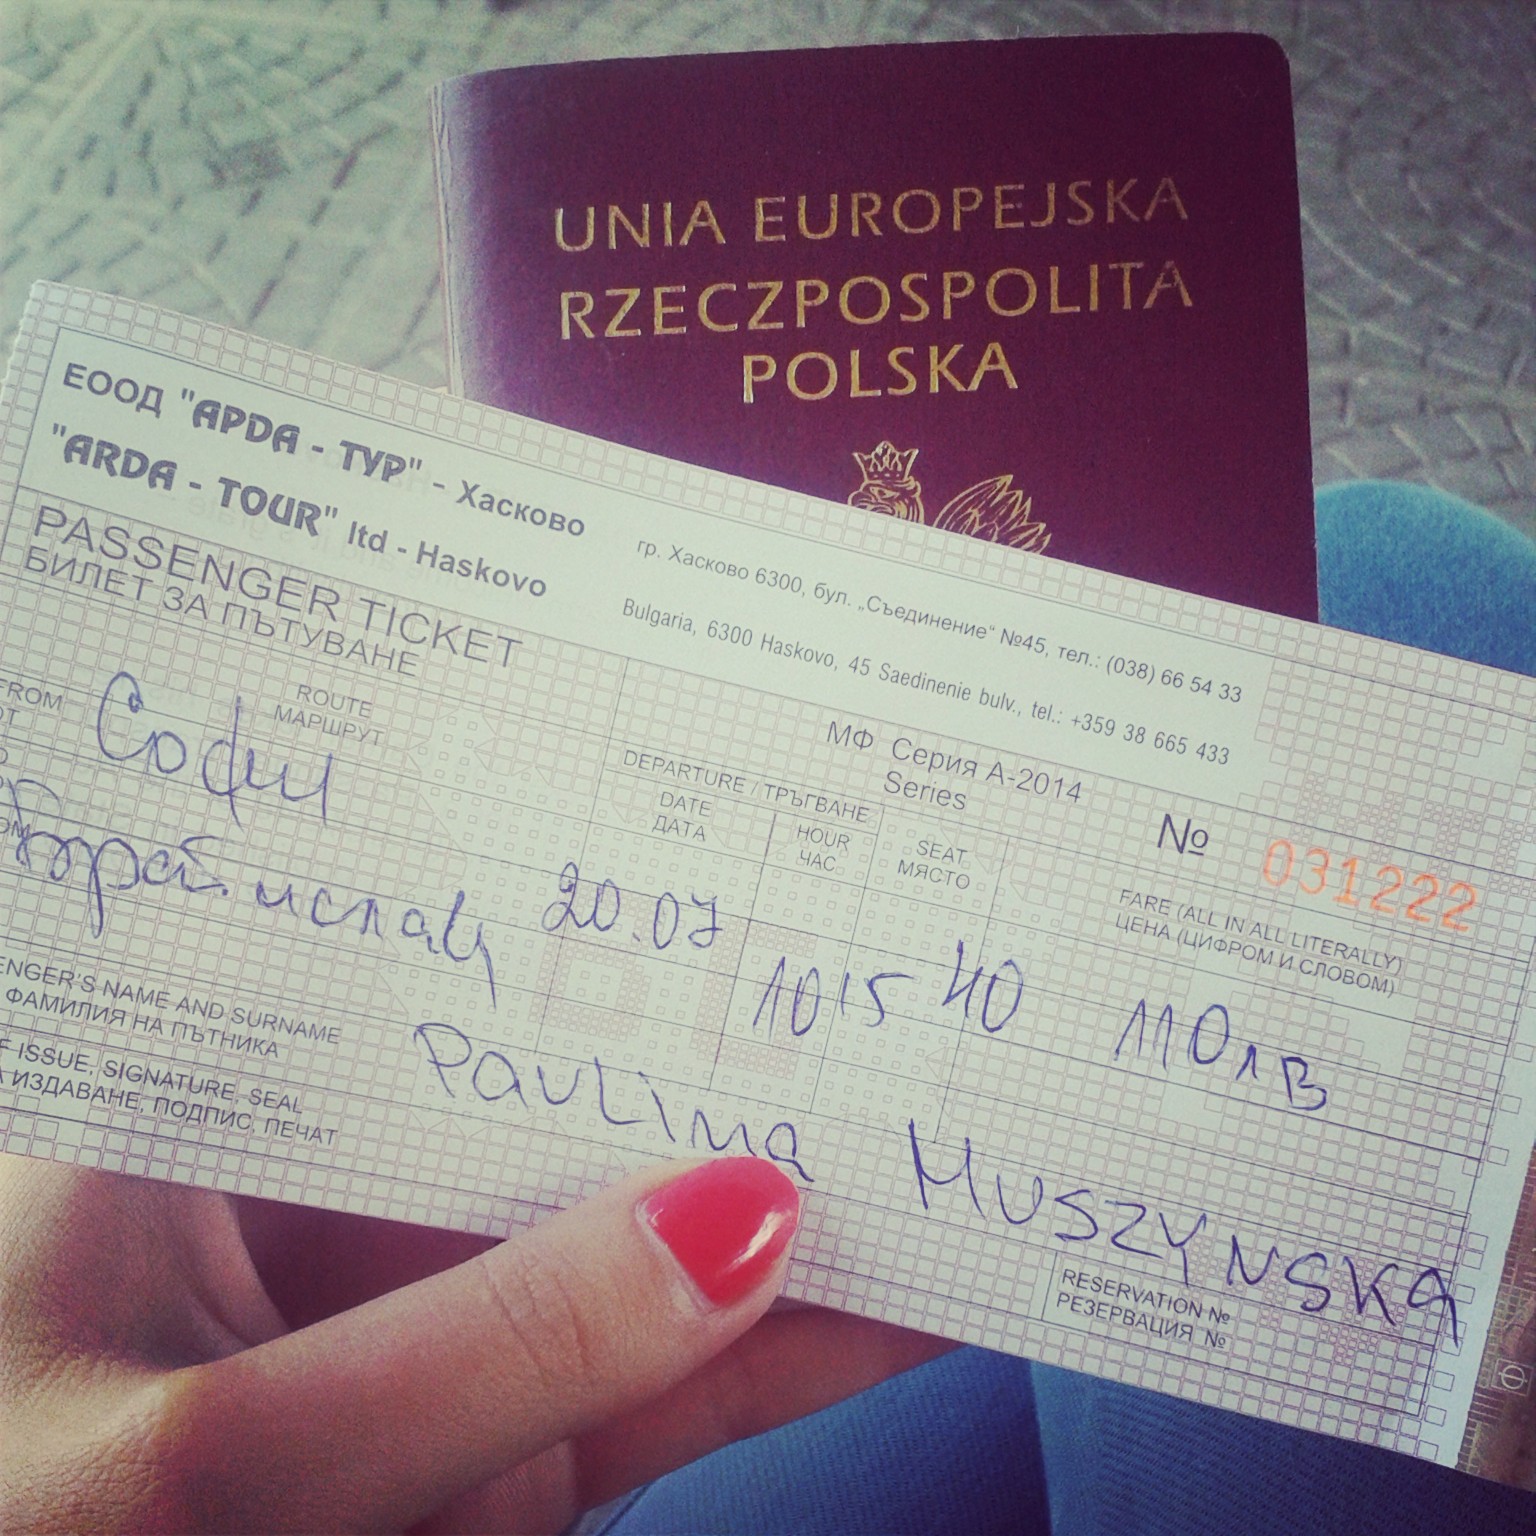 UNIA EUROPEJSKA
RZECZPOSPOLITA
POLSKA
ЕООД "АРДА - ТУР" - Хасково
"ARDA - TOUR" ltd - Haskovo
гр. Хасково 6300, бул. „Съединение“ №45, тел.: (038) 66 54 33
Bulgaria, 6300 Haskovo, 45 Saedinenie bulv., tel.: +359 38 665 433
PASSENGER TICKET
БИЛЕТ ЗА ПЪТУВАНЕ
МФ Серия А-2014
Series
№ 031222
ROUTE
МАРШРУТ
DEPARTURE / ТРЪГВАНЕ
DATE
ДАТА
HOUR
ЧАС
SEAT
МЯСТО
FARE (ALL IN ALL LITERALLY)
ЦЕНА (ЦИФРОМ И СЛОВОМ)
FROM
ОТ
Софи
20.07 1015 40 110лв
ENGER'S NAME AND SURNAME
ФАМИЛИЯ НА ПЪТНИКА
Paulina Muszynska
F ISSUE, SIGNATURE, SEAL
ИЗДАВАНЕ, ПОДПИС, ПЕЧАТ
RESERVATION №
РЕЗЕРВАЦИЯ №